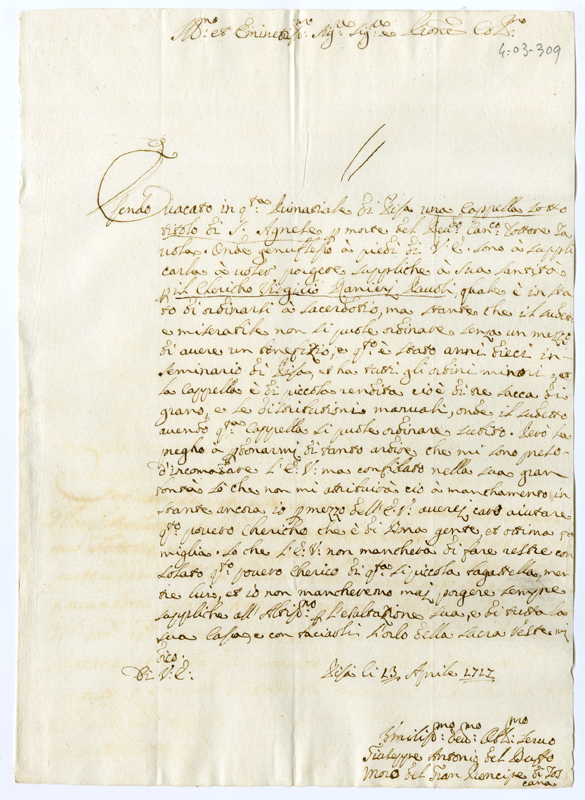 Ill.mo et Eminentiss.mo Sig.re Sig.re Prone Col.mo
4-03-309
Essendo Vacato in q.ta Primaziale di Pisa una Cappella sotto
titolo di S. Agnese p morte del Rev.do Can.co Dottore Ta
vola. Onde genuflesso à piedi di V. E. sono à suppli
carla à voler porgere suppliche à Sua Santità
p il Cherico Virgilio Ranieri, quale è in sta
to di ordinarsi à Sacerdotio, ma stante che il sud.to
e miserabile non si puole ordinare senza un mezzo
di avere un benefizio, e q.to è stato anni dieci in
Seminario di Pisa, et ha tutti gli ordini minori, et
la Cappella è di piccola rendita cioè di tre sacca di
grano, e le distributioni manuali, onde il sudetto
avendo q.ta Cappella si puole ordinare subito. Però la
prego à p donarmi di tanto ardire che mi sono preso
d'incomodare L'E. V. ma confidato nella sua gran
bontà sò che non mi attribuirà ciò à manchamento, in
stante ancora io p mezzo dell'E. V. averei caro aiutare
q.to povero Chericho che è di buona gente, et ottima fa
miglia. Sò che L'E. V. non mancherà di fare restare con
solato q.to povero Cherico di q.ta sì piccola bagattella, men
tre lui, et io non mancheremo mai porgere sempre
suppliche all'Altiss.mo p l'esaltazione sua, e di tutta la
sua Casa, e con baciarli l'orlo della sacra veste mi
dico.
Di V. E.
Pisa li 13 Aprile 1717
Umiliss.mo dev.mo Obb.mo Servo
Giuseppe Antonio del Buffo
moro del Gran Principe di Tos
cana